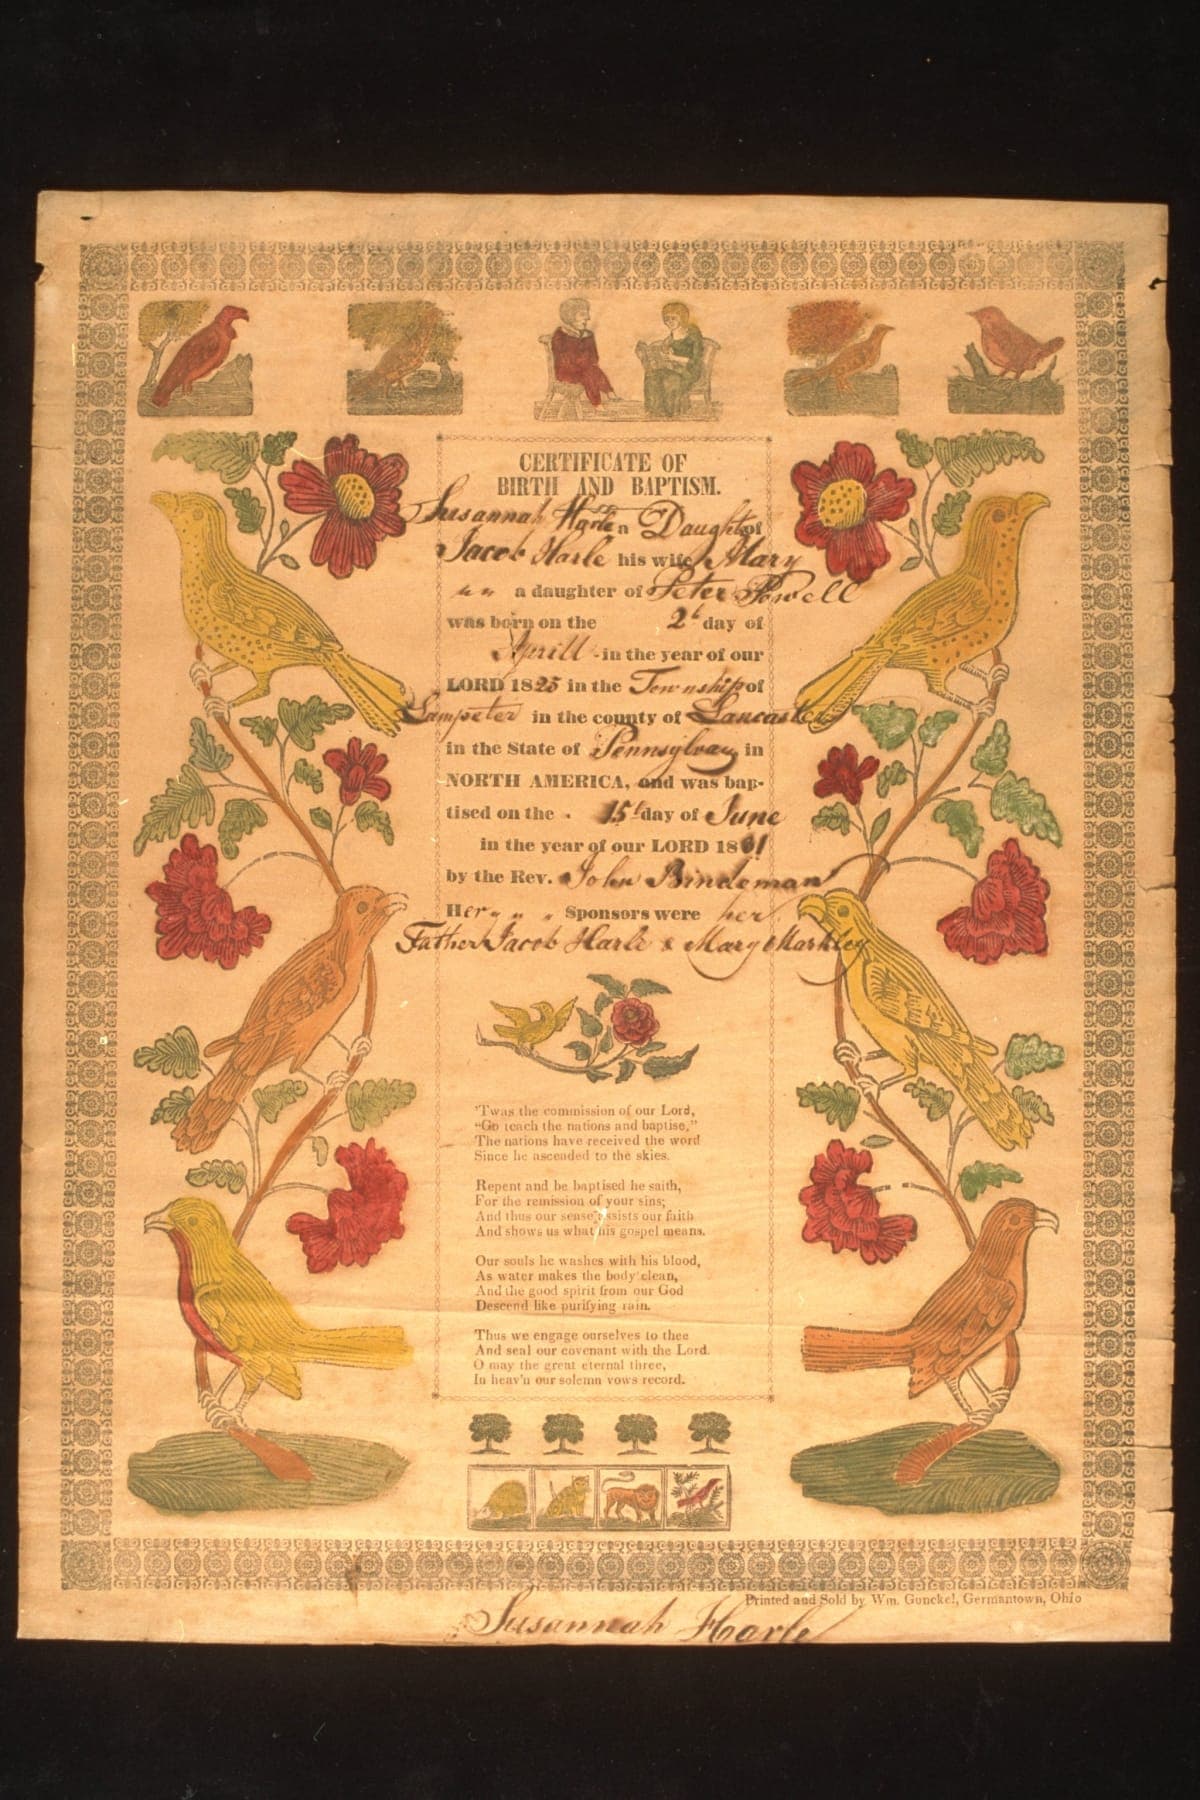 CERTIFICATE OF
BIRTH AND BAPTISM.
Susannah Harle a Daught of
Jacob Harle his wife Mary
" " a daughter of Peter Powell
was born on the 2t day of
Aprill - in the year of our
LORD 1825 in the Township of
Lampeter in the county of Lancaster
in the State of Pennsylvan in
NORTH AMERICA, and was bap-
tised on the 15t day of June
in the year of our LORD 18
by the Rev. John Bindeman
Her " " " Sponsors were her
Father Jacob Harle & Mary Markley
'Twas the commission of our Lord,
"Go teach the nations and baptise,"
The nations have received the word
Since he ascended to the skies.
Repent and be baptised he saith,
For the remission of your sins;
And thus our sense assists our faith
And shows us what his gospel means.
Our souls he washes with his blood,
As water makes the body clean,
And the good spirit from our God
Descend like purifying rain.
Thus we engage ourselves to thee
And seal our covenant with the Lord.
O may the great eternal three,
In heav'n our solemn vows record.
Printed and Sold by Wm. Gunckel, Germantown, Ohio
Susannah Harle